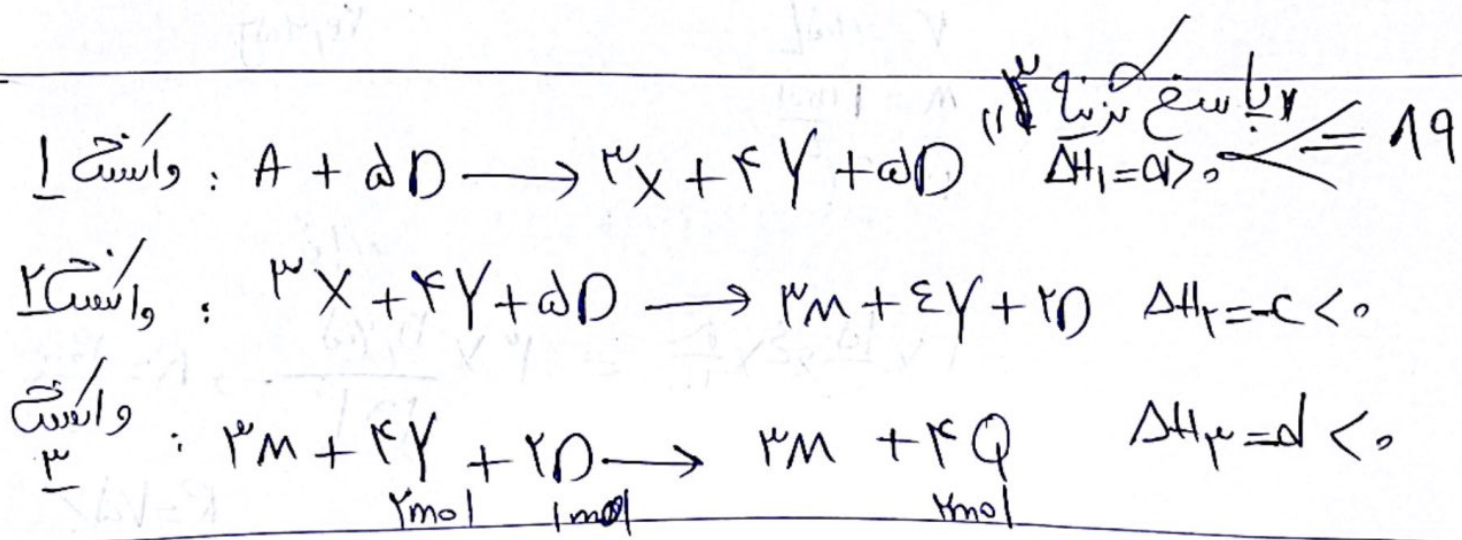 ۸۹ = پاسخ گزینه "۳"
واکنش ۱ : A + ۵D → ۳X + ۴Y + ۵D ΔH₁ = a > ۰
واکنش ۲ : ۳X + ۴Y + ۵D → ۳M + ٤Y + ۲D ΔH۲ = -c < ۰
واکنش ۳ : ۳M + ۴Y + ۲D → ۳M + ۴Q ΔH۳ = d < ۰
۲mol ۱mol ۲mol